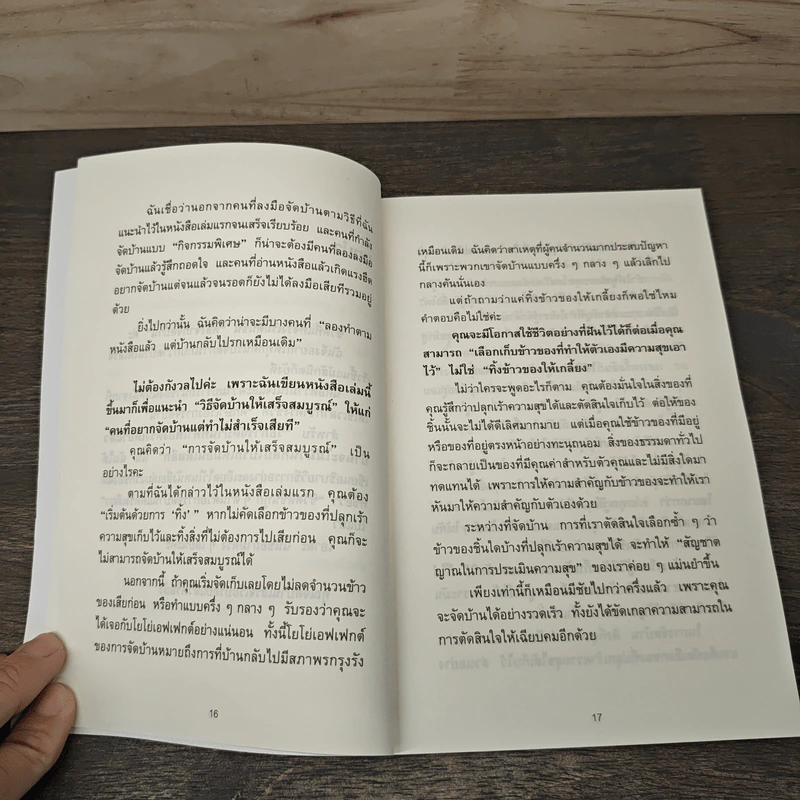 ฉันเชื่อว่านอกจากคนที่ลงมือจัดบ้านตามวิธีที่ฉัน
แนะนำไว้ในหนังสือเล่มแรกจนเสร็จเรียบร้อย และคนที่กำลัง
จัดบ้านแบบ “กิจกรรมพิเศษ” ก็น่าจะต้องมีคนที่ลองลงมือ
จัดบ้านแล้วรู้สึกถอดใจ และคนที่อ่านหนังสือแล้วเกิดแรงฮึด
อยากจัดบ้านแต่จนแล้วจนรอดก็ยังไม่ได้ลงมือเสียทีรวมอยู่
ด้วย
ยิ่งไปกว่านั้น ฉันคิดว่าน่าจะมีบางคนที่ “ลองทำตาม
หนังสือแล้ว แต่บ้านกลับไปรกเหมือนเดิม”
ไม่ต้องกังวลไปค่ะ เพราะฉันเขียนหนังสือเล่มนี้
ขึ้นมาก็เพื่อแนะนำ “วิธีจัดบ้านให้เสร็จสมบูรณ์” ให้แก่
“คนที่อยากจัดบ้านแต่ทำไม่สำเร็จเสียที”
คุณคิดว่า “การจัดบ้านให้เสร็จสมบูรณ์” เป็น
อย่างไรคะ
ตามที่ฉันได้กล่าวไว้ในหนังสือเล่มแรก คุณต้อง
“เริ่มต้นด้วยการ ‘ทิ้ง’ ” หากไม่คัดเลือกข้าวของที่ปลุกเร้า
ความสุขเก็บไว้และทิ้งสิ่งที่ไม่ต้องการไปเสียก่อน คุณก็จะ
ไม่สามารถจัดบ้านให้เสร็จสมบูรณ์ได้
นอกจากนี้ ถ้าคุณเริ่มจัดเก็บเลยโดยไม่ลดจำนวนข้าว
ของเสียก่อน หรือทำแบบครึ่ง ๆ กลาง ๆ รับรองว่าคุณจะ
ได้เจอกับโยโย่เอฟเฟกต์อย่างแน่นอน ทั้งนี้โยโย่เอฟเฟกต์
ของการจัดบ้านหมายถึงการที่บ้านกลับไปมีสภาพรกรุงรัง
16
เหมือนเดิม ฉันคิดว่าสาเหตุที่ผู้คนจำนวนมากประสบปัญหา
นี้ก็เพราะพวกเขาจัดบ้านแบบครึ่ง ๆ กลาง ๆ แล้วเลิกไป
กลางคันนั่นเอง
แต่ถ้าถามว่าแค่ทิ้งข้าวของให้เกลี้ยงก็พอใช่ไหม
คำตอบคือไม่ใช่ค่ะ
คุณจะมีโอกาสใช้ชีวิตอย่างที่ฝันไว้ได้ก็ต่อเมื่อคุณ
สามารถ “เลือกเก็บข้าวของที่ทำให้ตัวเองมีความสุขเอา
ไว้” ไม่ใช่ “ทิ้งข้าวของให้เกลี้ยง”
ไม่ว่าใครจะพูดอะไรก็ตาม คุณต้องมั่นใจในสิ่งของที่
คุณรู้สึกว่าปลุกเร้าความสุขได้และตัดสินใจเก็บไว้ ต่อให้ของ
ชิ้นนั้นจะไม่ได้ดีเลิศมากมาย แต่เมื่อคุณใช้ข้าวของที่มีอยู่
หรือของที่อยู่ตรงหน้าอย่างทะนุถนอม สิ่งของธรรมดาทั่วไป
ก็จะกลายเป็นของที่มีคุณค่าสำหรับตัวคุณและไม่มีสิ่งใดมา
ทดแทนได้ เพราะการให้ความสำคัญกับข้าวของจะทำให้เรา
หันมาให้ความสำคัญกับตัวเองด้วย
ระหว่างที่จัดบ้าน การที่เราตัดสินใจเลือกซ้ำ ๆ ว่า
ข้าวของชิ้นใดบ้างที่ปลุกเร้าความสุขได้ จะทำให้ “สัญชาต
ญาณในการประเมินความสุข” ของเราค่อย ๆ แม่นยำขึ้น
เพียงเท่านี้ก็เหมือนมีชัยไปกว่าครึ่งแล้ว เพราะคุณ
จะจัดบ้านได้อย่างรวดเร็ว ทั้งยังได้ขัดเกลาความสามารถใน
การตัดสินใจให้เฉียบคมอีกด้วย
17